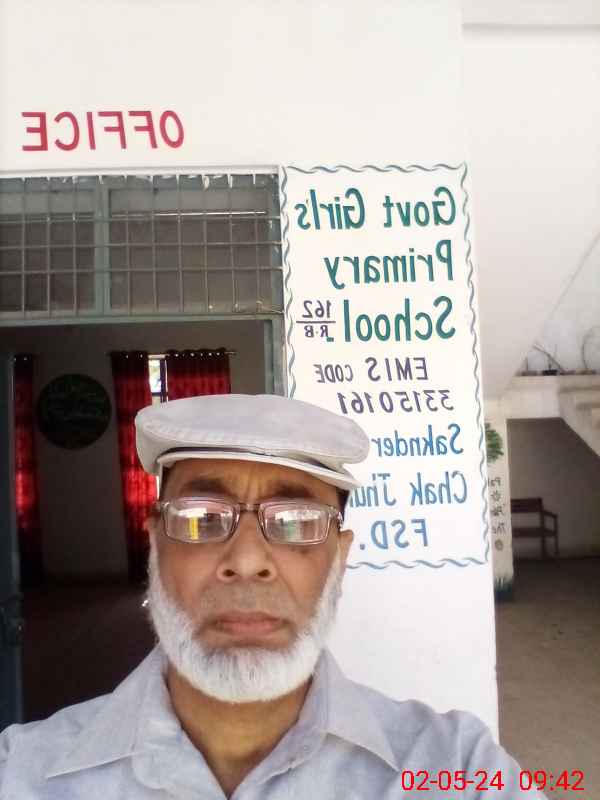 OFFICE
Govt Girl's
Primary
School 162
R·B
EMIS CODE
33150161
Saknder
Chak Jhu
FSD.
02-05-24 09:42